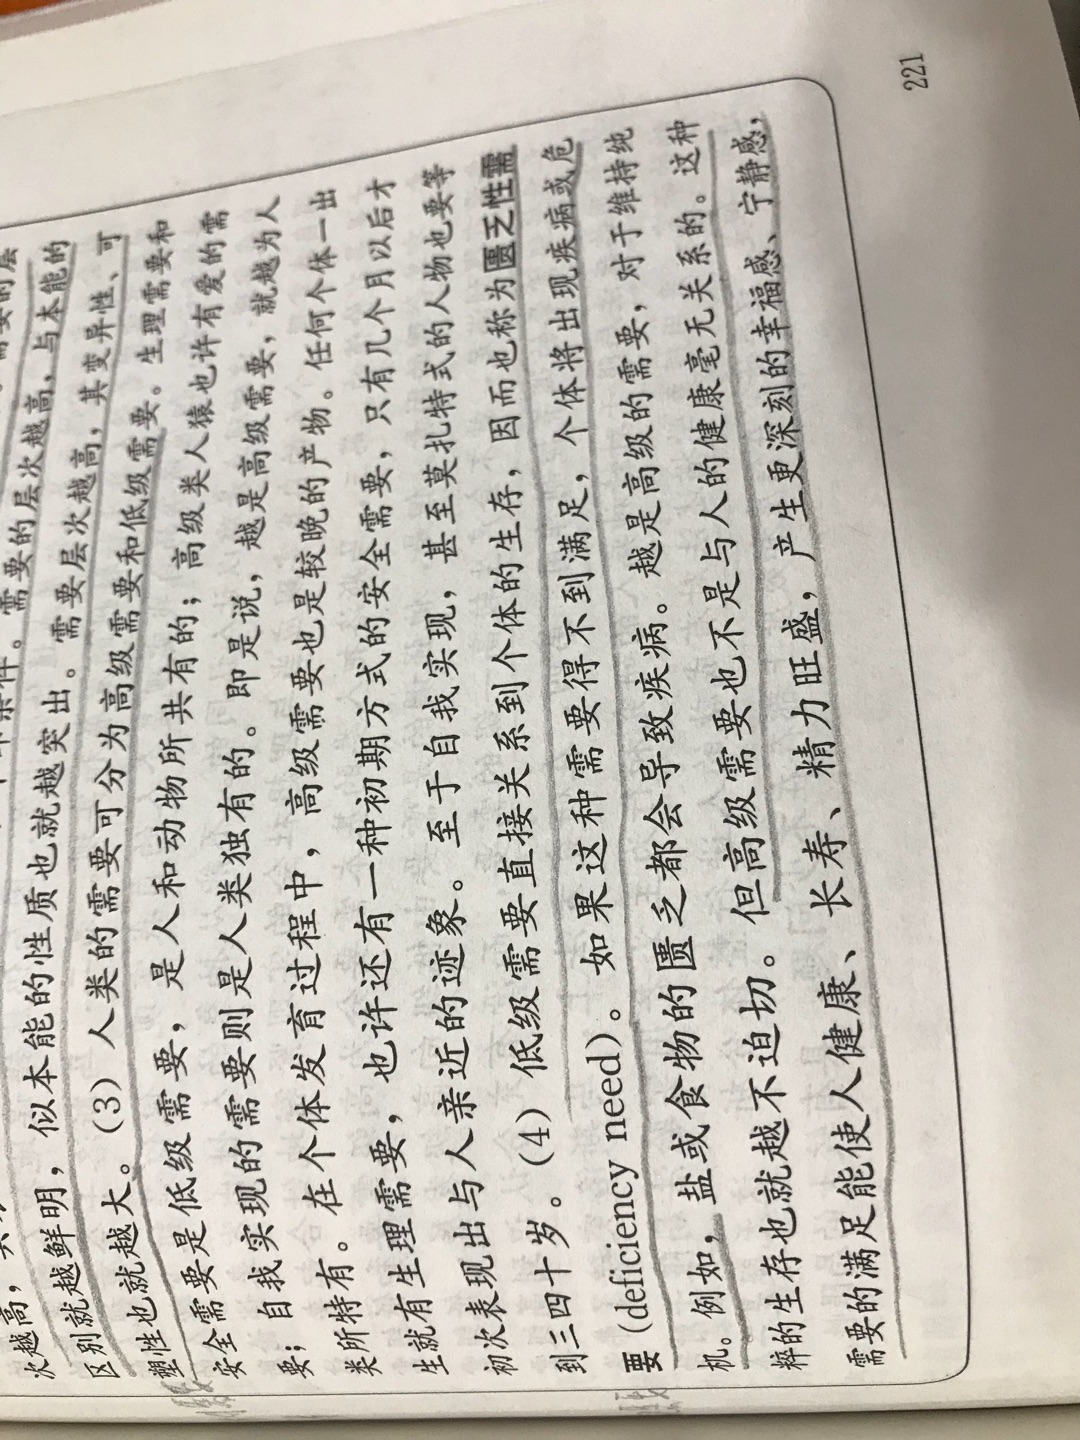 次越高,
需要的层次越高,与本能的
区别就越鲜明,似本能的性质也就越突出。需要层次越高,其变异性、可
塑性也就越大。(3)人类的需要可分为高级需要和低级需要。生理需要和
安全需要是低级需要,是人和动物所共有的;高级类人猿也许有爱的需
要;自我实现的需要则是人类独有的。即是说,越是高级需要,就越为人
类所特有。在个体发育过程中,高级需要也是较晚的产物。任何个体一出
生就有生理需要,也许还有一种初期方式的安全需要,只有几个月以后才
初次表现出与人亲近的迹象。至于自我实现,甚至莫扎特式的人物也要等
到三四十岁。(4)低级需要直接关系到个体的生存,因而也称为匮乏性需
要(deficiency need)。如果这种需要得不到满足,个体将出现疾病或危
机。例如,盐或食物的匮乏都会导致疾病。越是高级的需要,对于维持纯
粹的生存也就越不迫切。但高级需要也不是与人的健康毫无关系的。这种
需要的满足能使人健康、长寿、精力旺盛,产生更深刻的幸福感、宁静感,
221